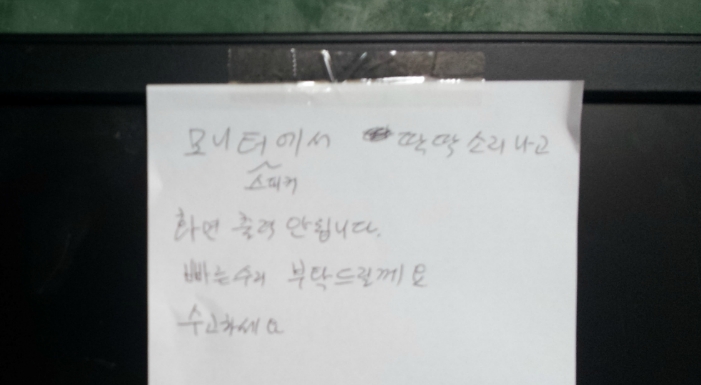 모니터에서 딱딱 소리나고
스피커
화면 출력 안됩니다.
빠른수리 부탁드릴께요
수고하세요